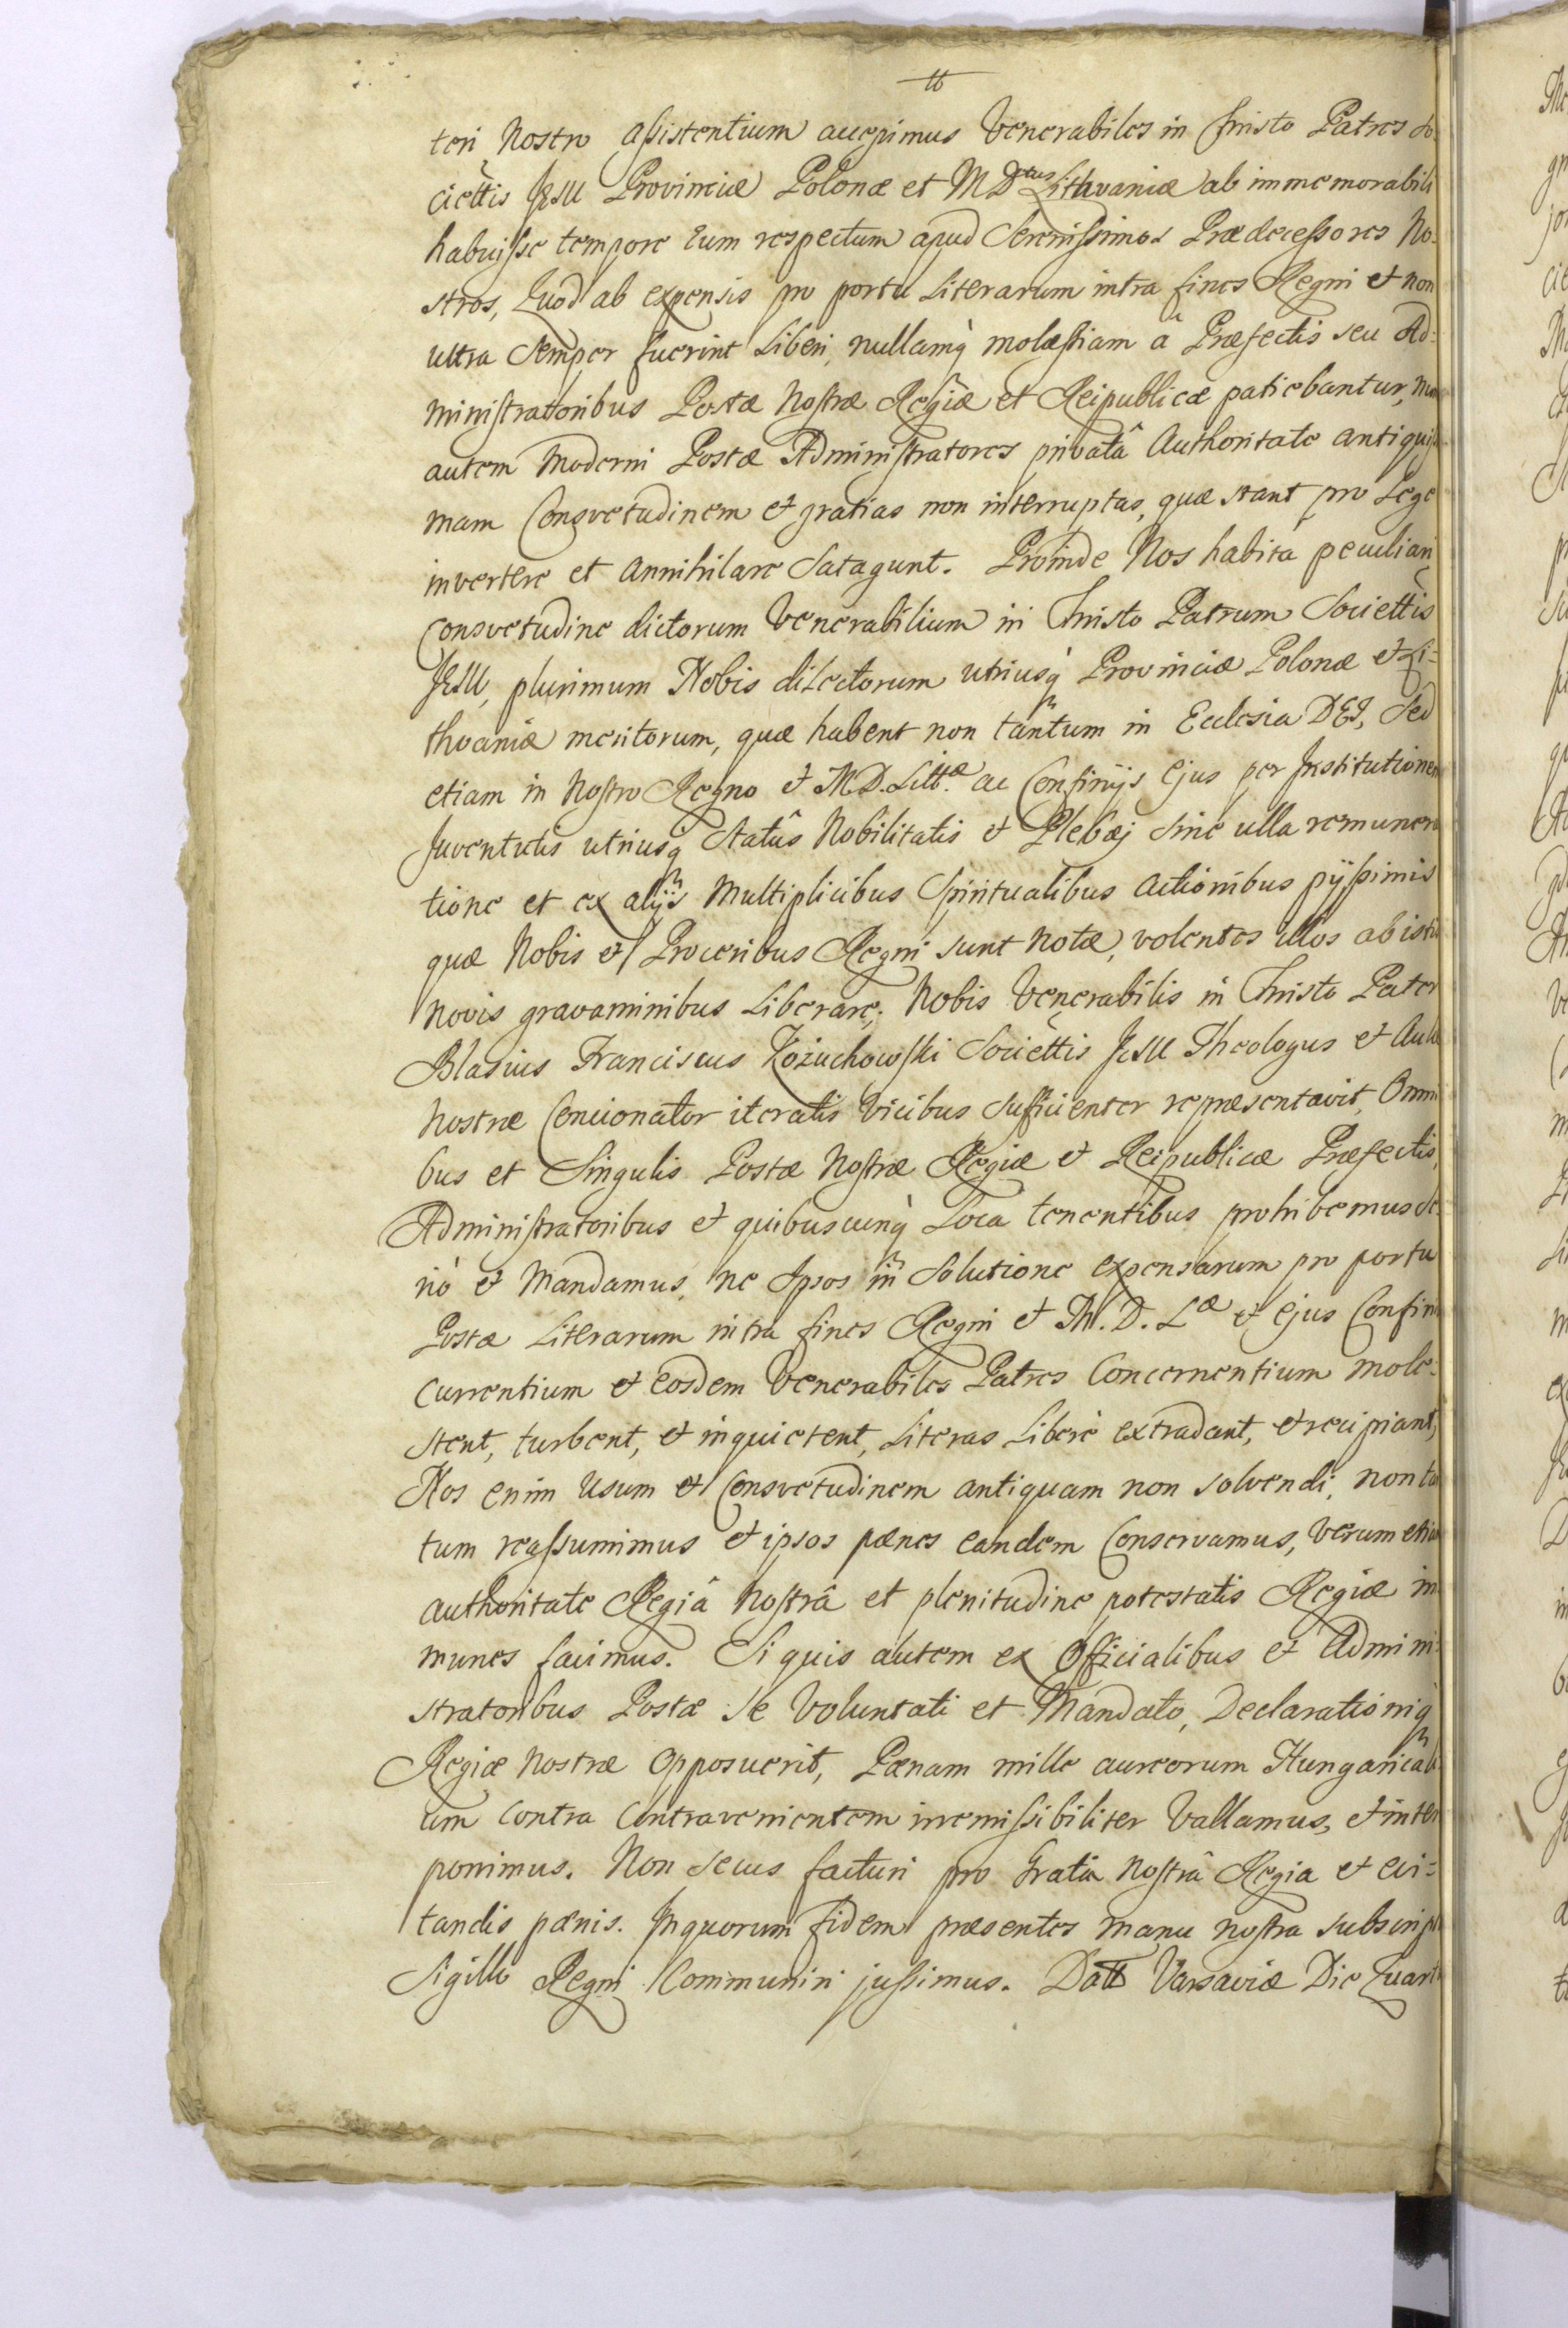 teri Nostro assistentium accepimus Venerabiles in Christo Patres So-
ciettis JESU Provinciæ Polonæ et M D ctus Lithvaniæ ab immemorabili
habuisse tempore eum respectum apud Serenissimos Prædecessores No-
stros, Quod ab expensis pro portu Literarum intra fines Regni et non
ultra semper fuerint Liberi, nullamq molæstiam â Præfectis seu Ad-
ministratoribus Postæ Nostræ Regiæ et Reipublicæ patiebantur,
autem Moderni Postæ Administratores privatâ Authoritate antiquis
mam Consvetudinem et gratias non interruptas, quæ stant pro Lege
invertere et Annihilare Satagunt. Proinde Nos habita peculiari
Consvetudine dictorum Venerabilium in Christo Patrum Societtis
JESU, plurimum Nobis dilectorum utriusq Provinciæ Polonæ et Li=
thvaniæ meritorum, quæ habent non tantum in Ecclesia DEI, Sed
etiam in Nostro Regno et M.D. Litt.æ ac Confinijs Ejus per Institutionem
Juventutis utriusq Statûs Nobilitatis et Plebæj sine ulla remunera
tione et ex alijs Multiplicibus Spiritualibus Actionibus pijssimis
quæ Nobis et Proceribus Regni sunt Notæ, volentes illos ab istis
Novis gravaminibus Liberare, Nobis Venerabilis in Christo Pater
Blasius Franciscus Kożuchowski Societtis JESU Theologus et Aulæ
Nostræ Concionator iteratis vicibus sufficienter repræsentavit, Omni
bus et Singulis Postæ Nostræ Regiæ et Reipublicæ Præfectis,
Administratoribus et quibuscunq Loca tenentibus prohibemus se
riò et Mandamus, ne Ipsos in Solutione expensarum pro portu
Postæ Literarum intra fines Regni et M. D. Læ et Ejus Confinia
Currentium et Eosdem Venerabiles Patres Concernentium mole-
stent, turbent, et inquietent, Literas Liberè extradant, et recipiant,
Nos enim Usum et Consvetudinem antiquam non solvendi, non tan
tum reassumimus et ipsos pænes eandem Conservamus, Verum etiam
authoritate Regiâ Nostrâ et plenitudine potestatis Regiæ im
munes facimus. Si quis autem ex Officialibus et Admini-
stratoribus Postæ se Voluntati et Mandato, Declarationiq
Regiæ Nostræ Opposuerit, Pænam mille aureorum Hungarical
ium Contra Contravenientem irremissibiliter Vallamus, et inter
ponimus. Non secus facturi pro Gratia Nostrâ Regia et evi=
tandis pænis. In quorum fidem præsentes manu nostra subscrip
Sigillo Regni Communiri jussimus. Datt Varsaviæ Die Quart